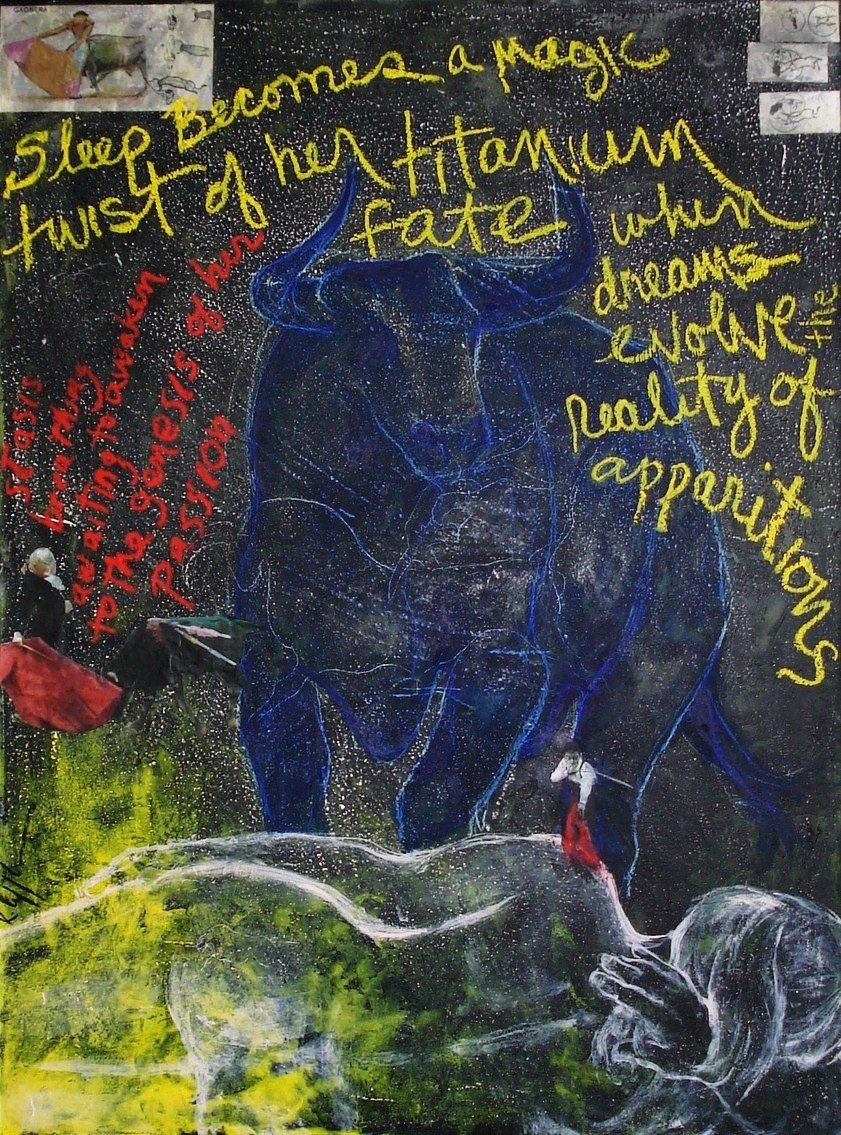 GAONERA
Sleep Becomes a magic
twist of her titanium
fate when
dreams
evolve the
reality of
apparitions
stasis
brewing
awaiting to awaken
to the genesis of her
passion